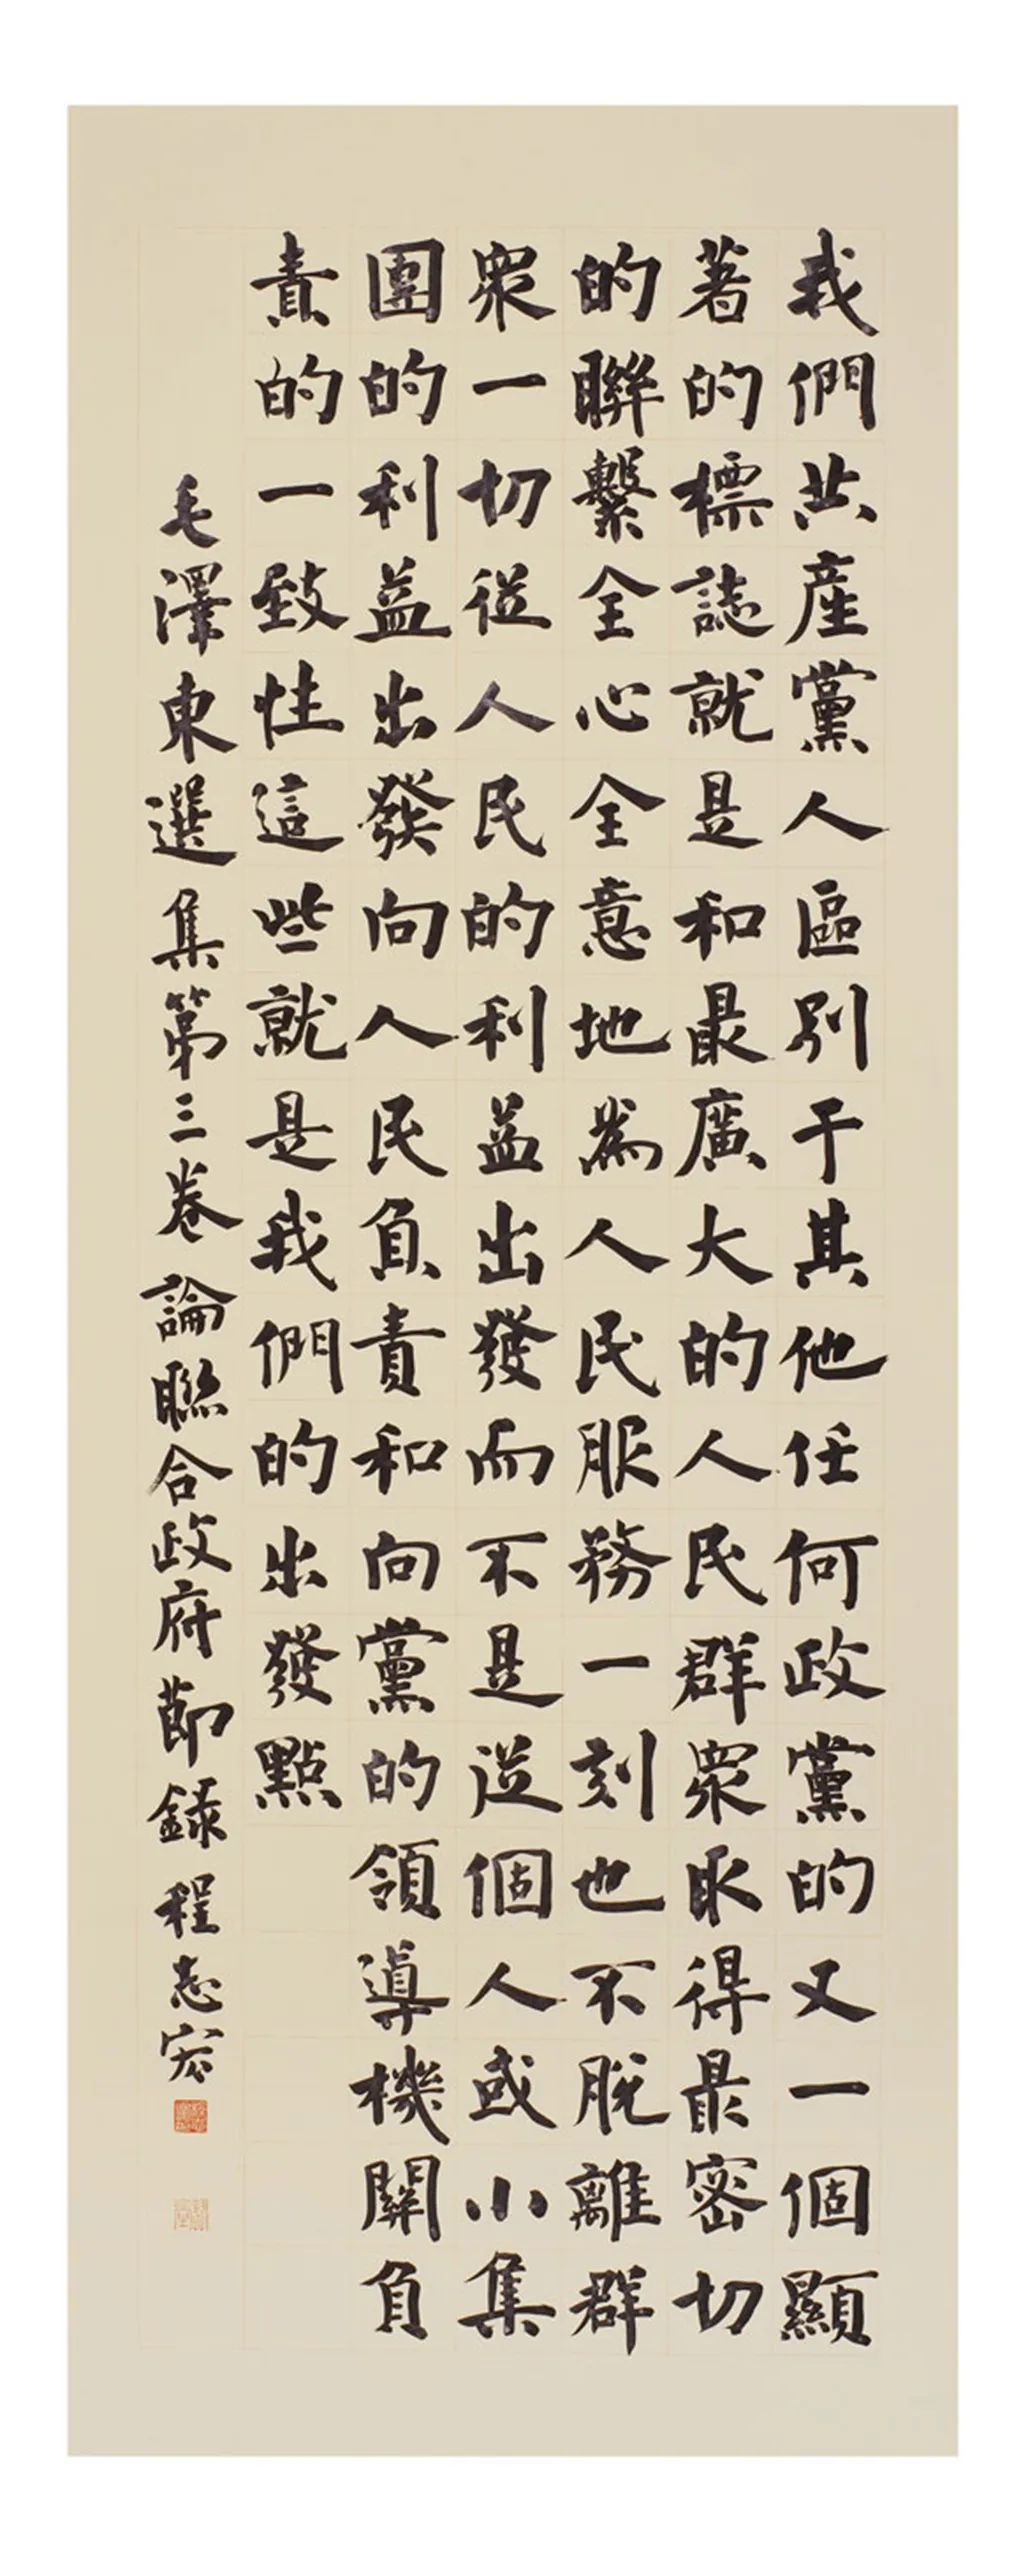 我們共産黨人區別于其他任何政黨的又一個顯
著的標誌就是和最廣大的人民群眾取得最密切
的聯繫全心全意地為人民服務一刻也不脫離群
眾一切從人民的利益出發而不是從個人或小集
團的利益出發向人民負責和向黨的領導機關負
責的一致性這些就是我們的出發點
毛澤東選集第三卷論聯合政府節録程志宏